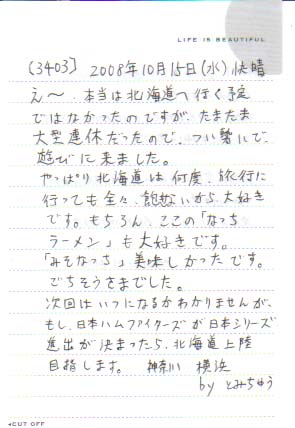 LIFE IS BEAUTIFUL
(3403) 2008年10月15日(水) 快晴
え〜、本当は北海道へ行く予定
ではなかったのですが、たまたま
大型連休だったので、つい勢いで、
遊びに来ました。
やっぱり北海道は何度、旅行に
行っても全々、飽きないから大好き
です。もちろん、ここの「なっち
ラーメン」も大好きです。
「みそなっち」美味しかったです。
ごちそうさまでした。
次回はいつになるかわかりませんが、
もし、日本ハムファイターズが日本シリーズ
進出が決まったら、北海道上陸
目指します。 神奈川 横浜
by とみちゅう
◂CUT OFF